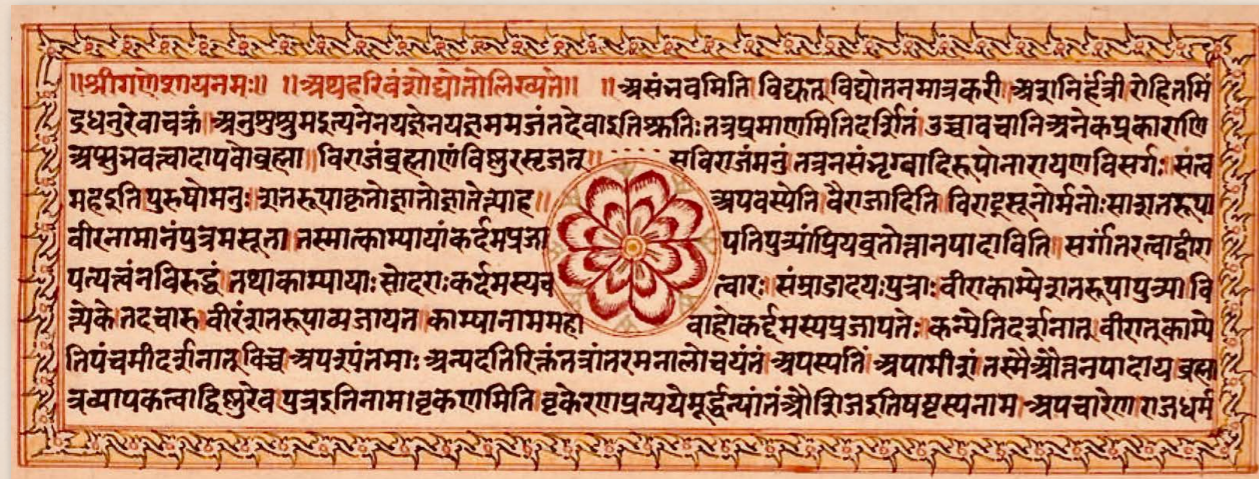 ॥श्रीगणेशायनमः॥ ॥अथहरिवंशोद्योतोलिख्यते॥ ॥असंभवमिति विद्युत् विद्योतनमात्रकरी अशनिर्हंत्री रोहितमिं
द्रधनुरेवाचक्रं अनुशुश्रुमइत्यनेनयज्ञेनयज्ञममजंतदेवाइतिश्रुतिः तत्रप्रमाणमितिदर्शितं उच्चावचानि अनेकप्रकाराणि
अप्सुभवत्वादापवोब्रह्मा विराजंब्रह्माणंविष्णुरसृजत् सविराजंमनुं तत्रनसंभृग्वादिरूपोनारायणविसर्गः संत्व
महइति पुरुषोमनुः शतरूपाकृतोज्ञातोज्ञातेत्याह॥ अपवस्येति वैराजादिति विराट्सूनोर्मनोः साशतरूपा
वीरनामानंपुत्रमसूता तस्मात्काम्यायांकर्दमप्रजा पतिपुत्र्यांप्रियव्रतोत्तानपादाविति सर्गांतरत्वाद्वीरा
पत्यत्वंनविरुद्धं तथाकाम्यायाः सोदराः कर्दमस्यच त्वारः संम्राडादयःपुत्राः वीराकाम्येशतरूपापुत्र्या वि
त्येके तदचारु वीरंशतरूपाव्यजायत काम्यानाममहा वाहोकर्द्दमस्यप्रजापतेः कन्येतिदर्शनात् वीरात्काम्ये
तिपंचमीदर्शनात् विच्च अपशुपंतमाः अन्यदतिरिक्तंतत्रांतरमनालोचयंतं अपस्पतिं अपामीशं तस्मैऔत्तनपादाय ब्रह्म
त्रव्यापकत्वाद्विष्णुरेव पुत्रइतिनामा वृकणमिति वृकेरणप्रत्ययेमूर्द्धन्यांतं औशिजइतिषष्टस्यनाम अपचारेण राजधर्म